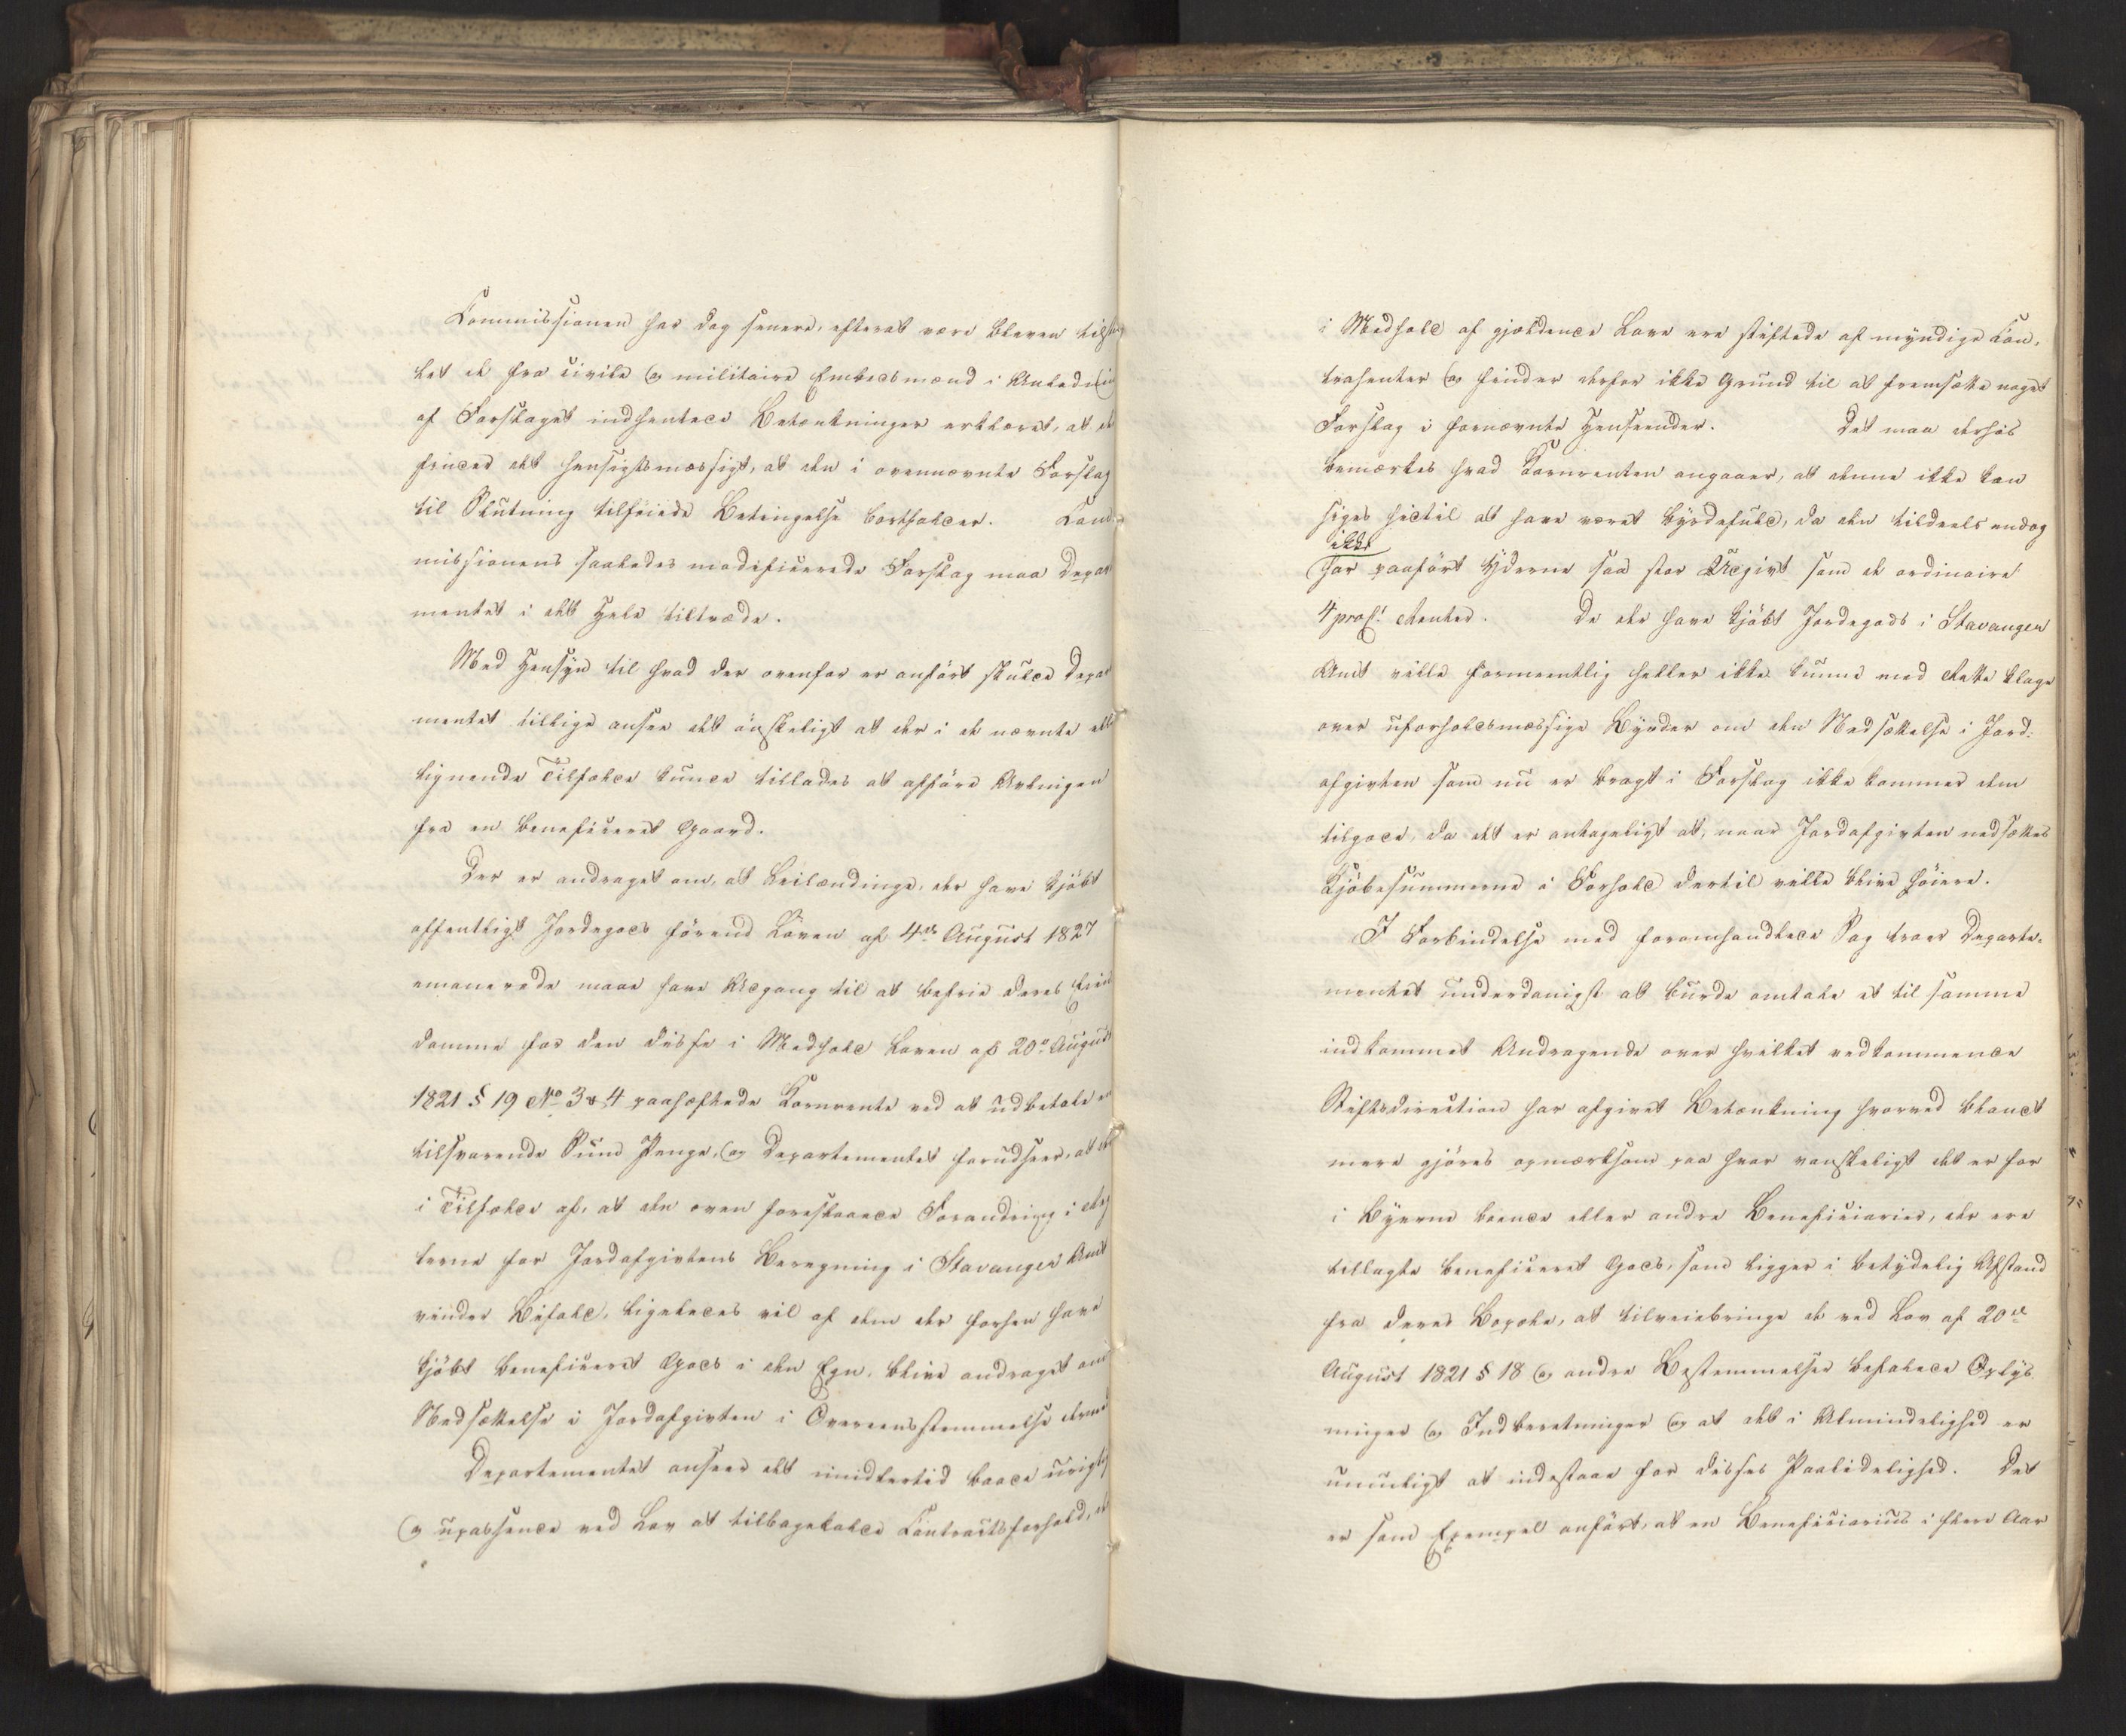 Commissionen har dog senere, efterat være bleven tilstil
let de fra civile og militaire Embedsmænd i Anledning
af Forslaget indhentede Betænkninger erklæret, at de
finder det hensigtsmæssigt, at den i ovennævnte Forslag
til Slutning tilføiede Betingelse bortfalder. Com
missionens saaledes modificerede Forslag maa Depar
mentet i det Hele tiltræde.
Med Hensyn til hvad der ovenfor er anført skulde Depar
mentet tillige ansee det ønskeligt at der i de nævnte eller
lignende Tilfælde kunde tillades at afføre Avlingen
fra en beneficeret Gaard.
Der er andraget om, at Leilændinge, der have kjøbt
offentligt Jordegods førend Loven af 4de August 1827
emanerede maae have Adgang til at befrie deres Eien
domme for den disse i Medhold Loven af 20de August
1821 § 19 No 3 & 4 paahæftede Kornrente ved at udbetale en
tilsvarende Sum Penge, og Departementet forudseer, at der
i Tilfælde af, at den oven foreslaaede Forandring i Reg
lerne for Jordafgivtens Beregning i Stavanger Amt
vinder Bifald, ligeledes vil af dem der forhen have
kjøbt beneficeret Gods i den Egn, blive andraget om
Nedsættelse i Jordafgivten i Overeensstemmelse dermed
Departementet anseer det imidlertid baade urigtig
og upassende ved Lov at tilbagekalde Contractsforhold, der
i Medhold af gjældende Love ere stiftede af myndige Con¬
trahenter og finder derfor ikke Grund til at fremsætte noget
Forslag i fornævnte Henseender. Det maa derhos
bemærkes hvad Kornrenten angaaer, at denne ikke kan
siges hidtil at have været byrdefuld, da den tildeels endog
ikke
har paaført Yderne saa stor Udgivt som de ordinaire
4 proCt Renter. De der have kjøbt Jordegods i Stavanger
Amt ville formeentlig heller ikke kunne med Rette klage
over uforholdsmæssige Byrder om den Nedsættelse i Jord¬
afgivten som nu er bragt i Forslag ikke kommer dem
tilgode, da det er antageligt at, naar Jordafgivten nedsættes
Kjøbesummerne i Forhold dertil ville blive høiere.
I Forbindelse med foromhandlede Sag troer Departe¬
mentet underdanigst at burde omtale et til samme
indkommet Andragende over hvilket vedkommende
Stiftsdirection har afgivet Betænkning hvorved blandt
mere gjøres opmærksom paa hvor vanskeligt det er for
i Byerne boende eller andre Beneficiarier, der ere
tillagte beneficeret Gods, som ligger i betydelig Afstand
fra deres Bopæle, at tilveiebringe de ved Lov af 20de
August 1821 § 18 og andre Bestemmelser befalede Oplys
ninger og Indberetninger og at det i Almindelighed er
umuligt at indestaae for disses Paalidelighed. Det
er som Exempel anført, at en Beneficiarius i flere Aar